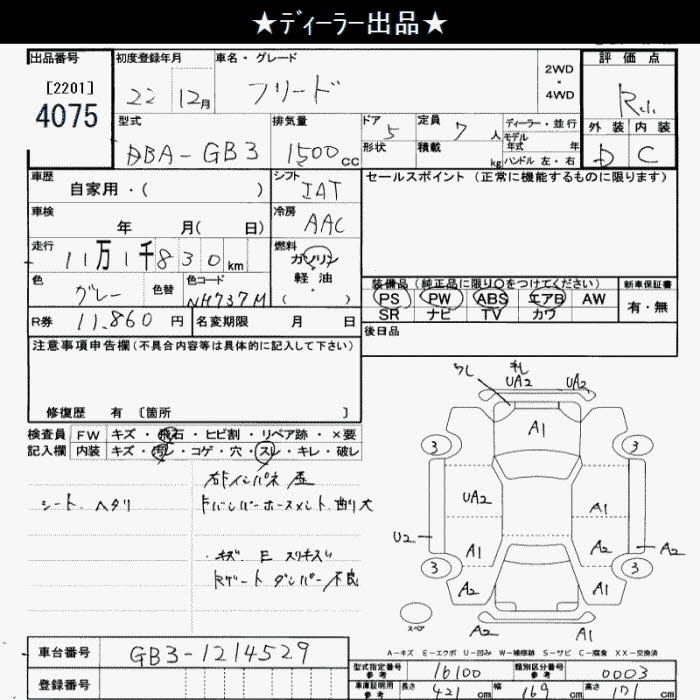 ★ディーラー出品★
出品番号 初度登録年月 車名・グレード 2WD ・ 4WD 評価点
[2201]
4075
22 12月 フリード R.1.
型式 排気量 ドア 定員 ディーラー・並行 外装 内装
DBA-GB3 1500cc 5 7人 モデル年式 年 D C
形状 積載 kg ハンドル 左・右
車歴 自家用・( ) シフト IAT セールスポイント(正常に機能するものに限ります)
車検 年 月( 日) 冷房 AAC
走行 11万1千830km 燃料 ガソリン 軽油 ( ・ )
色 グレー 色替 色コード NH737M
装備品(純正品に限り○をつけてください) 新車保証書
PS PW ABS エアB AW 有・無
SR ナビ TV カワ
R券 11,860円 名変期限 月 日 後日品
注意事項申告欄(不具合内容等は具体的に記入して下さい)
修復歴 有 〔箇所 〕
検査員 FW キズ・飛石・ヒビ割・リペア跡・×要
記入欄 内装 キズ・汚レ・コゲ・穴・スレ・キレ・破レ
シート ヘタリ
右ドインパネ 歪
Fバンパーホースメント 曲り大
・キズ E スリキズ有
Rゲートダンパー不良
ワレ
UA2
UA2
A1
3
3
UA2
A1
U2
A1
A2
A2
3
3
A2
A1
スペア
A2
A1
A-キズ E-エクボ U-凹み W-補修跡 S-サビ C-腐食 XX-交換済
車台番号 GB3-1214529
登録番号
型式指定番号 参考 16100 類別区分番号 参考 0003
車庫証明用 参考 長さ 421cm 幅 169cm 高さ 171cm